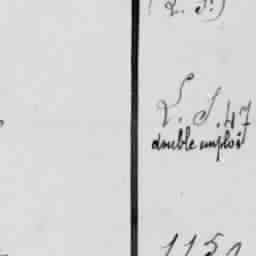 (L. S.)
L. S. 47
double emploi
115